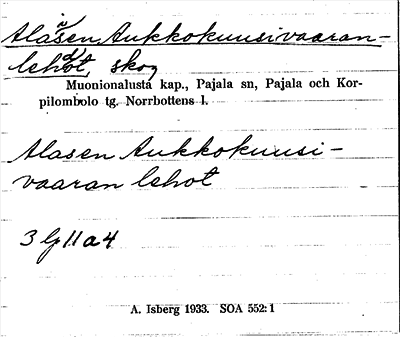 Alasen Aukkokuusivaaran-
lehot, skog
Muonionalusta kap., Pajala sn, Pajala och Kor-
pilombolo tg. Norrbottens l.
Alasen Aukkokuusi-
vaaran lehot
3 lj 11 a 4
A. Isberg 1933. SOA 552:1